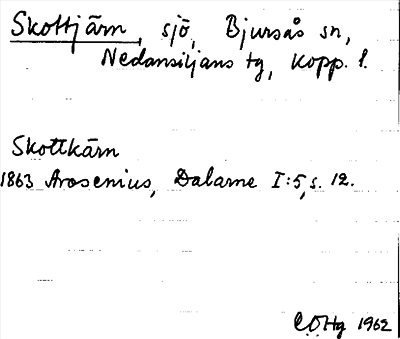 Skottjärn, sjö, Bjursås sn,
Nedansiljans tg, Kopp. l.
Skottkärn
1863 Arosenius, Dalarne I:5, s. 12.
1962